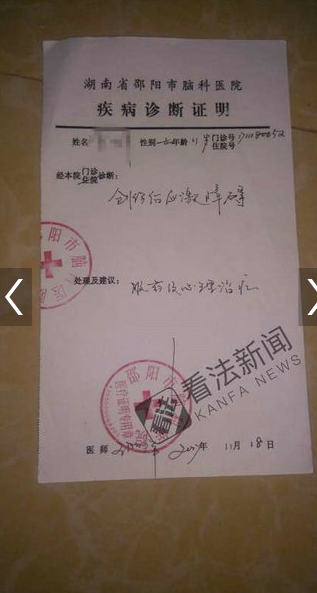 湖南省邵阳市脑科医院
疾病诊断证明
姓名 性别 女 年龄 11岁 门诊号
住院号
经本院门诊诊断:
住院
创伤后应激障碍
处理及建议:
服药及心理治疗
邵阳市脑科医院
邵阳市
医疗证明专用章
看法
看法新闻
KANFA NEWS
医师 年11月18日